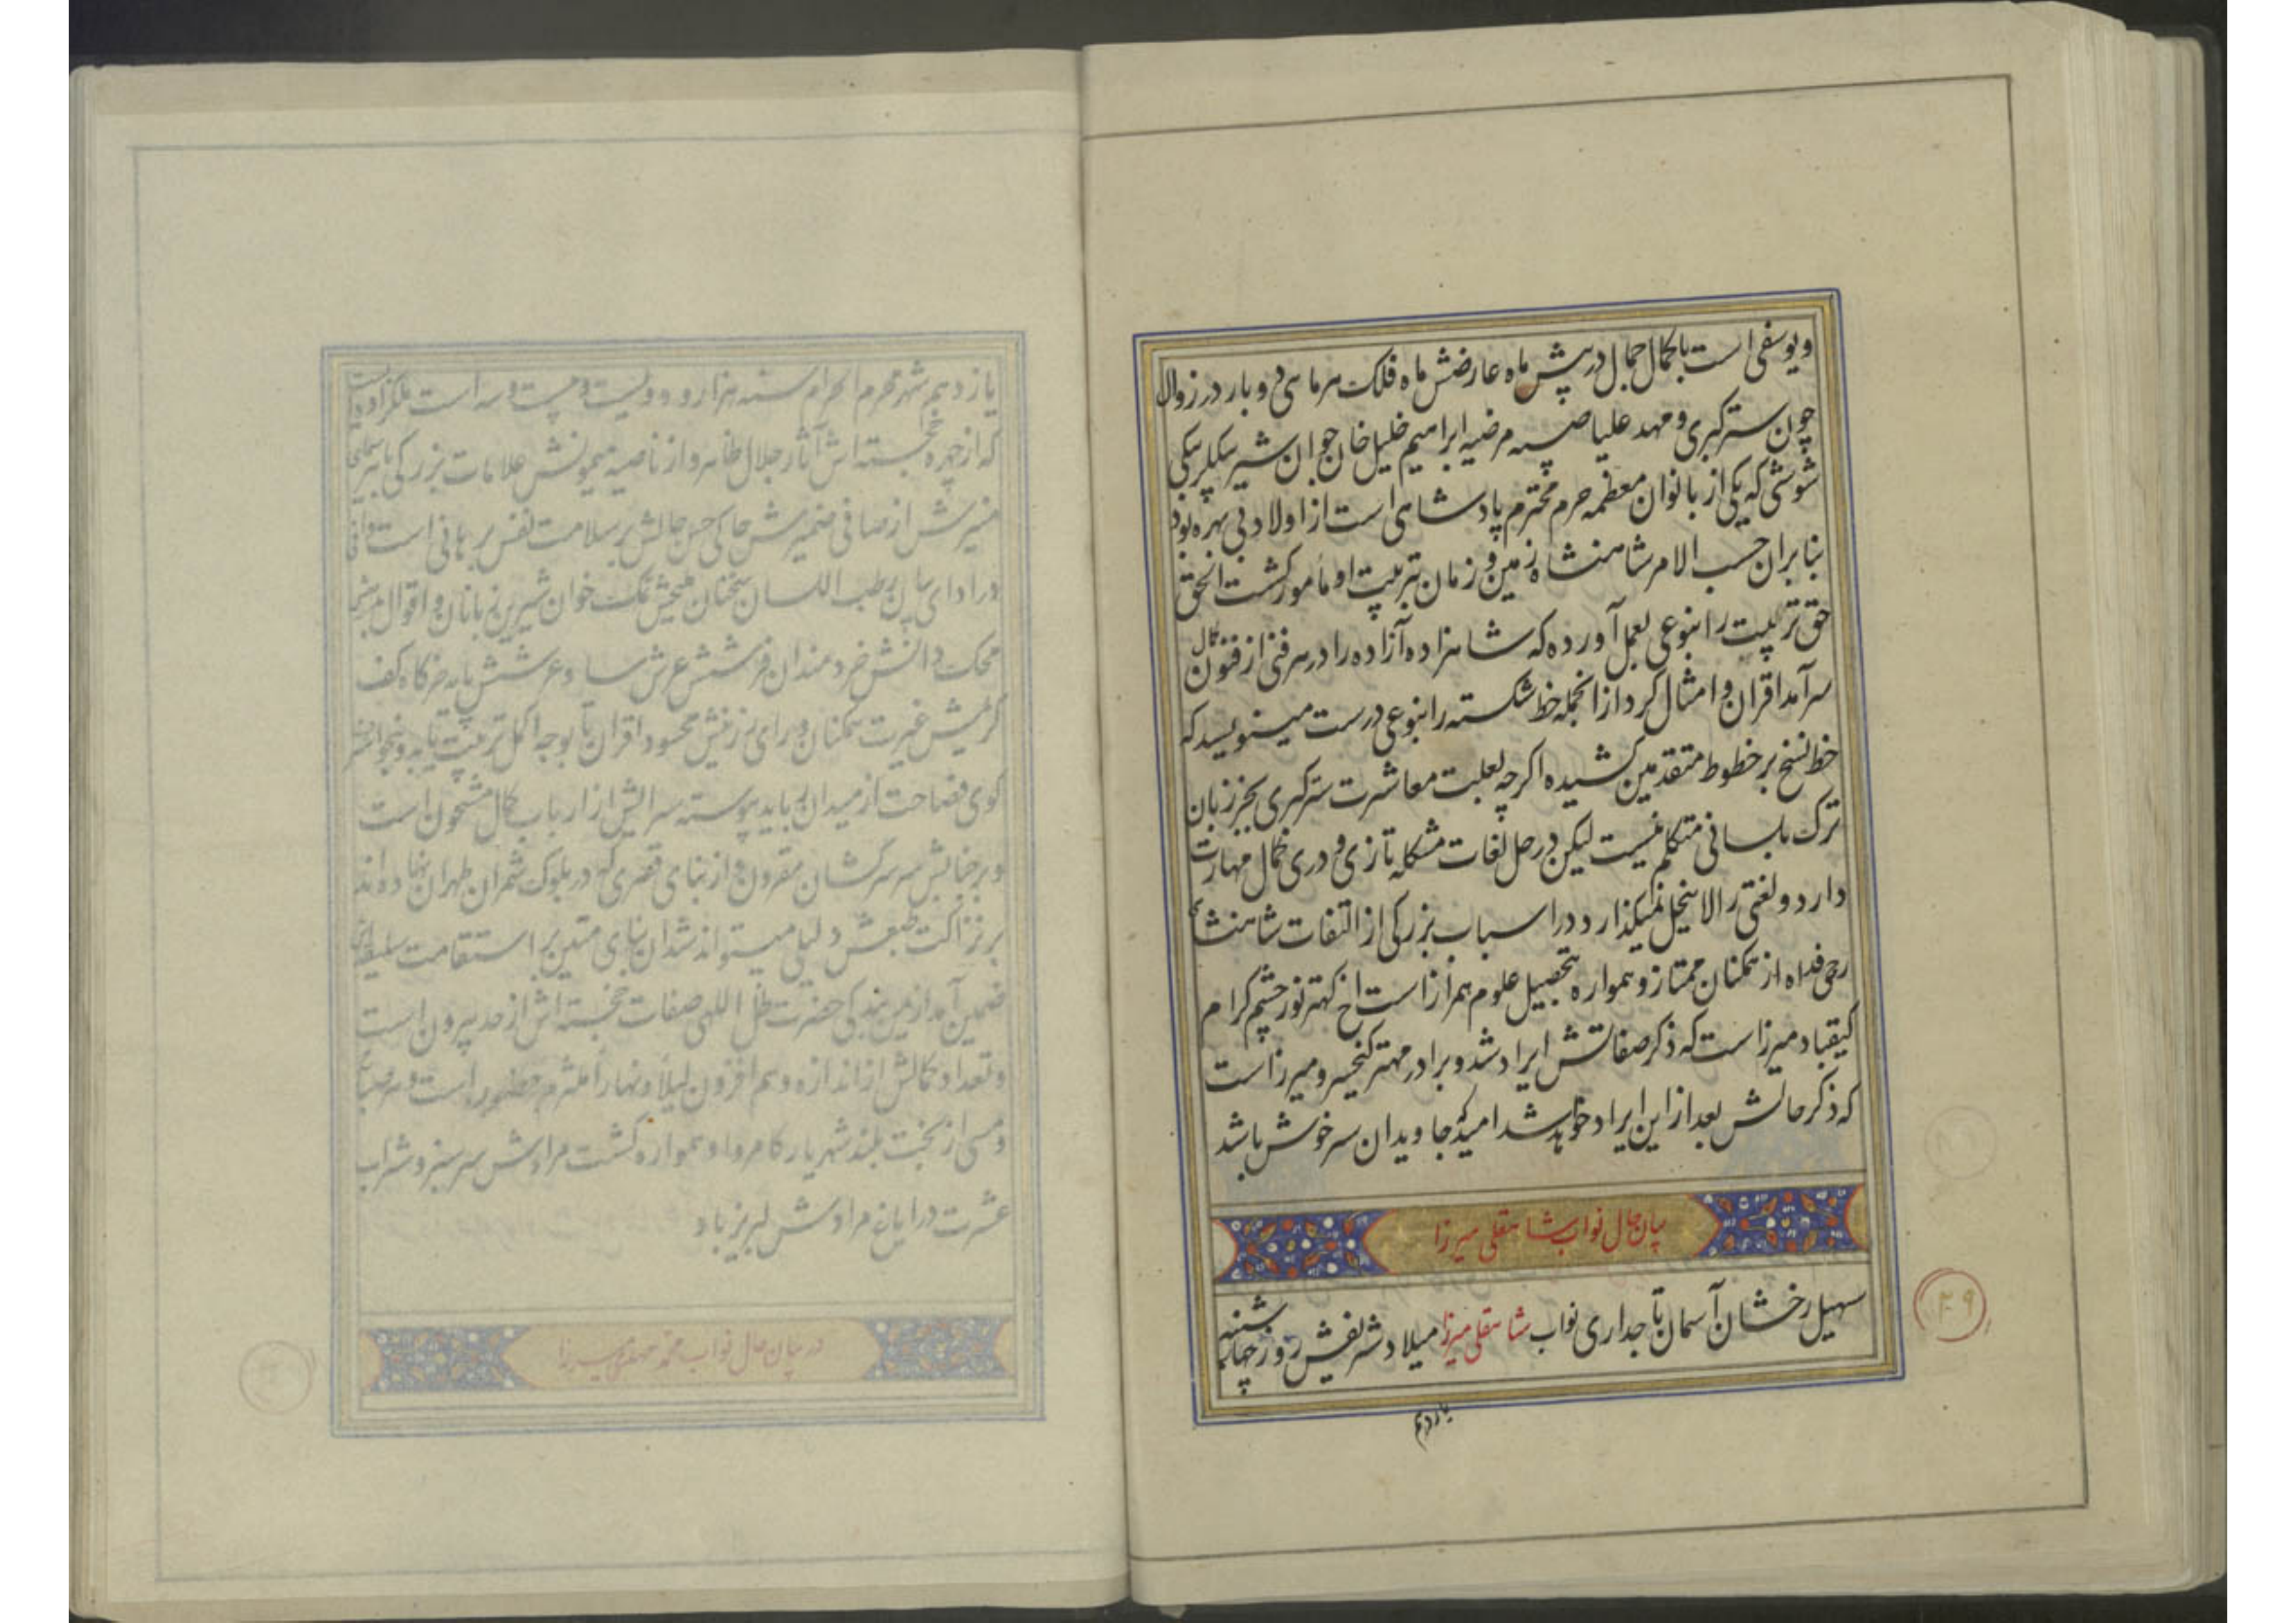 و یوسفی است با کمال جمال در پیش ماه عارضش ماه فلک هر ماهی دو بار در زوال
چون ستر کبری و مهد علیا صبیه مرضیه ابراهیم خلیل خان جوان شیر بیکلربیکی
شوشی که یکی از بانوان معظمه حرم محترم پادشاهی است از اولاد بی بهره بود
بنا بران حسب الامر شاهنشاه زمین و زمان بتربیت او مأمور کشت الحق
حق تربیت را بنوعی بعمل آورده که شاهزاده آزاده را در هر فنی از فنون کمال
سرآمد اقران و امثال کرد از انجمله خط شکسته را بنوعی درست مینویسد که
خط نسخ بر خطوط متقدمین کشیده اکرچه بعلت معاشرت ستر کبری بجز زبان
ترک بلسانی متکلم نیست لیکن در حل لغات مشکله تازی و دری کمال مهارت
دارد و لغتی را لاینحل نمیکذارد و در اسباب بزرکی از التفات شاهنشاهی
روحی فداه از همکنان ممتاز و همواره بتحصیل علوم همراز است اخ کهتر نور چشم کرام
کیقباد میرزا است که ذکر صفاتش ایراد شد و برادر مهتر کیخسرو میرزا است
که ذکر حالش بعد از این ایراد خواهد شد امید که جاویدان سرخوش باشد
بیان حال نواب شاهقلی میرزا
سهیل رخشان آسمان تاجداری نواب شاهقلی میرزا میلاد شریفش روز چهارشنبه
یازدهم
۲۹
یازدهم شهر محرم الحرام سنه هزار و دویست و بیست و سه است ملکزاده
که از چهره خجسته اش آثار جلال ظاهر و از ناصیه میمونش علامات بزرکی باهر
منیرش از صافی ضمیرش حاکی حسن حالش بر سلامت نفس برهانی است
در ادای بیان رطب اللسان سخنان نمک خوان شیرین زبانان و اقوال
محک دانش خردمندان فرشش عرش سا و عرشش پایه خرکاه کف
کریمش غیرت همکنان و رای رزینش محسود اقران تا بوجه اکمل تربیت یابد
کوی فصاحت از میدان رباید پیوسته سرایش از ارباب کمال مشحون است
و بر جنابش سر سرکشان مقرون از بنای قصری که در بلوک شمران طهران نهاده اند
بر نزاکت طبعش دلیلی میتواند شد ان بنای متین بر استقامت سلیقه اش
ضمین آمد از یمن بندکی حضرت ظل اللهی صفات خجسته اش از حد بیرون است
و تعداد کمالش از اندازه وهم افزون لیلا و نهارا ملتزم حضور است و هر صباح
و مسی از بخت بلند شهریار کامروا و همواره کشت مرادش سر سبز و شراب
عشرت در ایاغ مرادش لبریز باد
در بیان حال نواب محمد مهدی میرزا